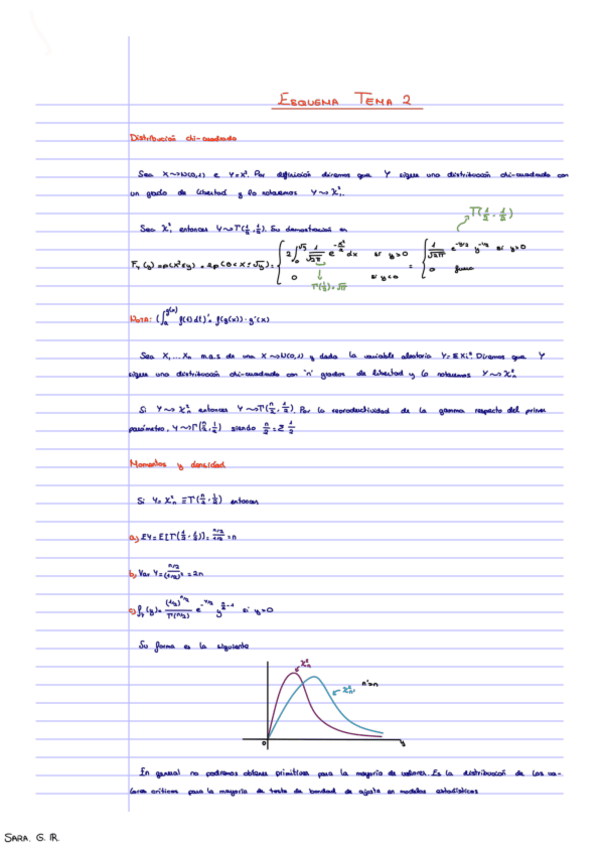 ESQUEMA TEMA 2
Distribución chi-cuadrado
Sea X⤳N(0,1) e Y=X². Por definición diremos que Y sigue una distribución chi-cuadrado con
un grado de libertad y lo notaremos Y⤳χ²₁.
Γ(1/2, 1/2)
Sea χ²₁ entonces Y⤳Γ(1/2, 1/2). Su demostración es
F_Y(y) = p(X²≤y) = 2p(0<X≤√y) = { 2∫₀^√y 1/√2π e^(-x²/2) dx si y>0 = { 1/√2π e^(-y/2) y^(-1/2) si y>0
0 si y<0 0 fuera
Γ(1/2)=√π
NOTA: (∫ₐ^g(x) f(t)dt)' = f(g(x))·g'(x)
Sea X₁...Xn m.a.s de una X⤳N(0,1) y dada la variable aleatoria Y=ΣXi². Diremos que Y
sigue una distribución chi-cuadrado con 'n' grados de libertad y lo notaremos Y⤳χ²n
Si Y⤳χ²n entonces Y⤳Γ(n/2, 1/2). Por la reproductividad de la gamma respecto del primer
parámetro, Y⤳Γ(n/2, 1/2) siendo n/2 = Σ 1/2
Momentos y densidad
Si Y= χ²n ≡Γ(n/2, 1/2) entonces
a) EY=E[Γ(1/2, 1/2)]= (n/2)/(1/2) =n
b) Var Y= (n/2)/(1/2)² =2n
c) f_Y(y)= (1/2)^(n/2)/Γ(n/2) e^(-y/2) y^(n/2-1) si y>0
Su forma es la siguiente
χ²n
χ²n' n'>n
0 y
En general no podremos obtener primitivas para la mayoría de valores. Es la distribución de los va-
lores críticos para la mayoría de tests de bondad de ajuste en modelos estadísticos
SARA. G. R.